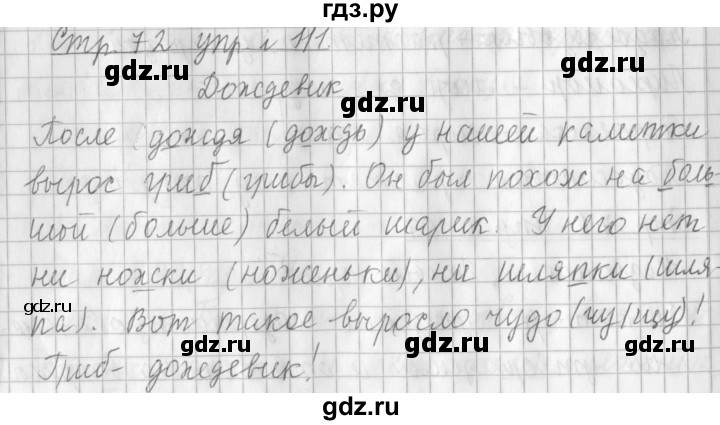 гдз.ру
Стр. 72 упр. 111.
gdz.ru gdz.ru
Дождевик
После дождя (дождь) у нашей калитки
вырос гриб (грибы). Он был похож на боль-
gdz.ru gdz.ru
шой (больше) белый шарик. У него нет
ни ножки (ноженьки), ни шляпки (шля-
gdz.ru gdz.ru
па). Вот такое выросло чудо (чу/щу)!
gdz.ru gdz.ru
Гриб - дождевик!
gdz.ru
gdz.ru